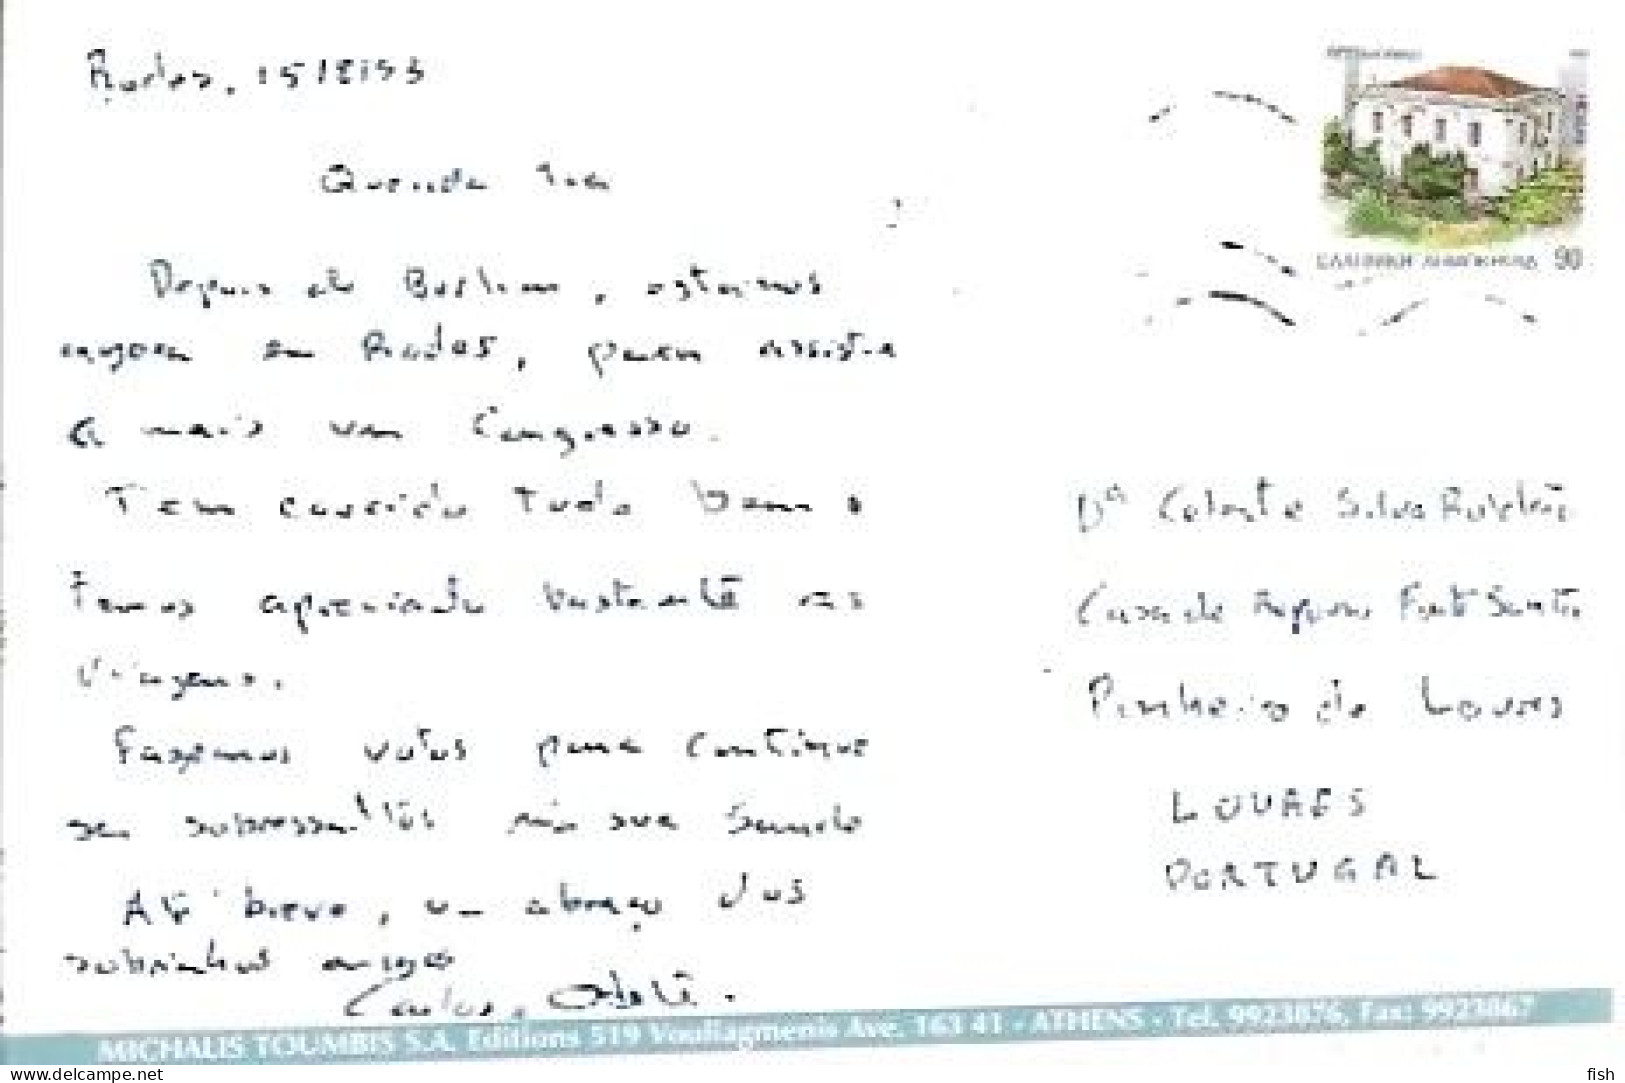 Rodes, 15/8/93
Querida Tia
Depois de Bodrum, estamos
agora em Rodes, para assistir
a mais um Congresso.
Tem corrido tudo bem e
temos apreciado bastante as
viagens.
Fazemos votos para continue
sem sobressaltos na sua saude
Até breve, um abraço dos
sobrinhos amigos
Carlos,
Dª Celeste Silva
Casa de Repouso Forte Santo
Pinheiro de Loures
LOURES
PORTUGAL
ΕΛΛΗΝΙΚΗ ΔΗΜΟΚΡΑΤΙΑ 90
MICHALIS TOUMBIS S.A. Editions 519 Vouliagmenis Ave. 163 41 - ATHENS - Tel. 9923876, Fax: 9923867
www.delcampe.net
fish